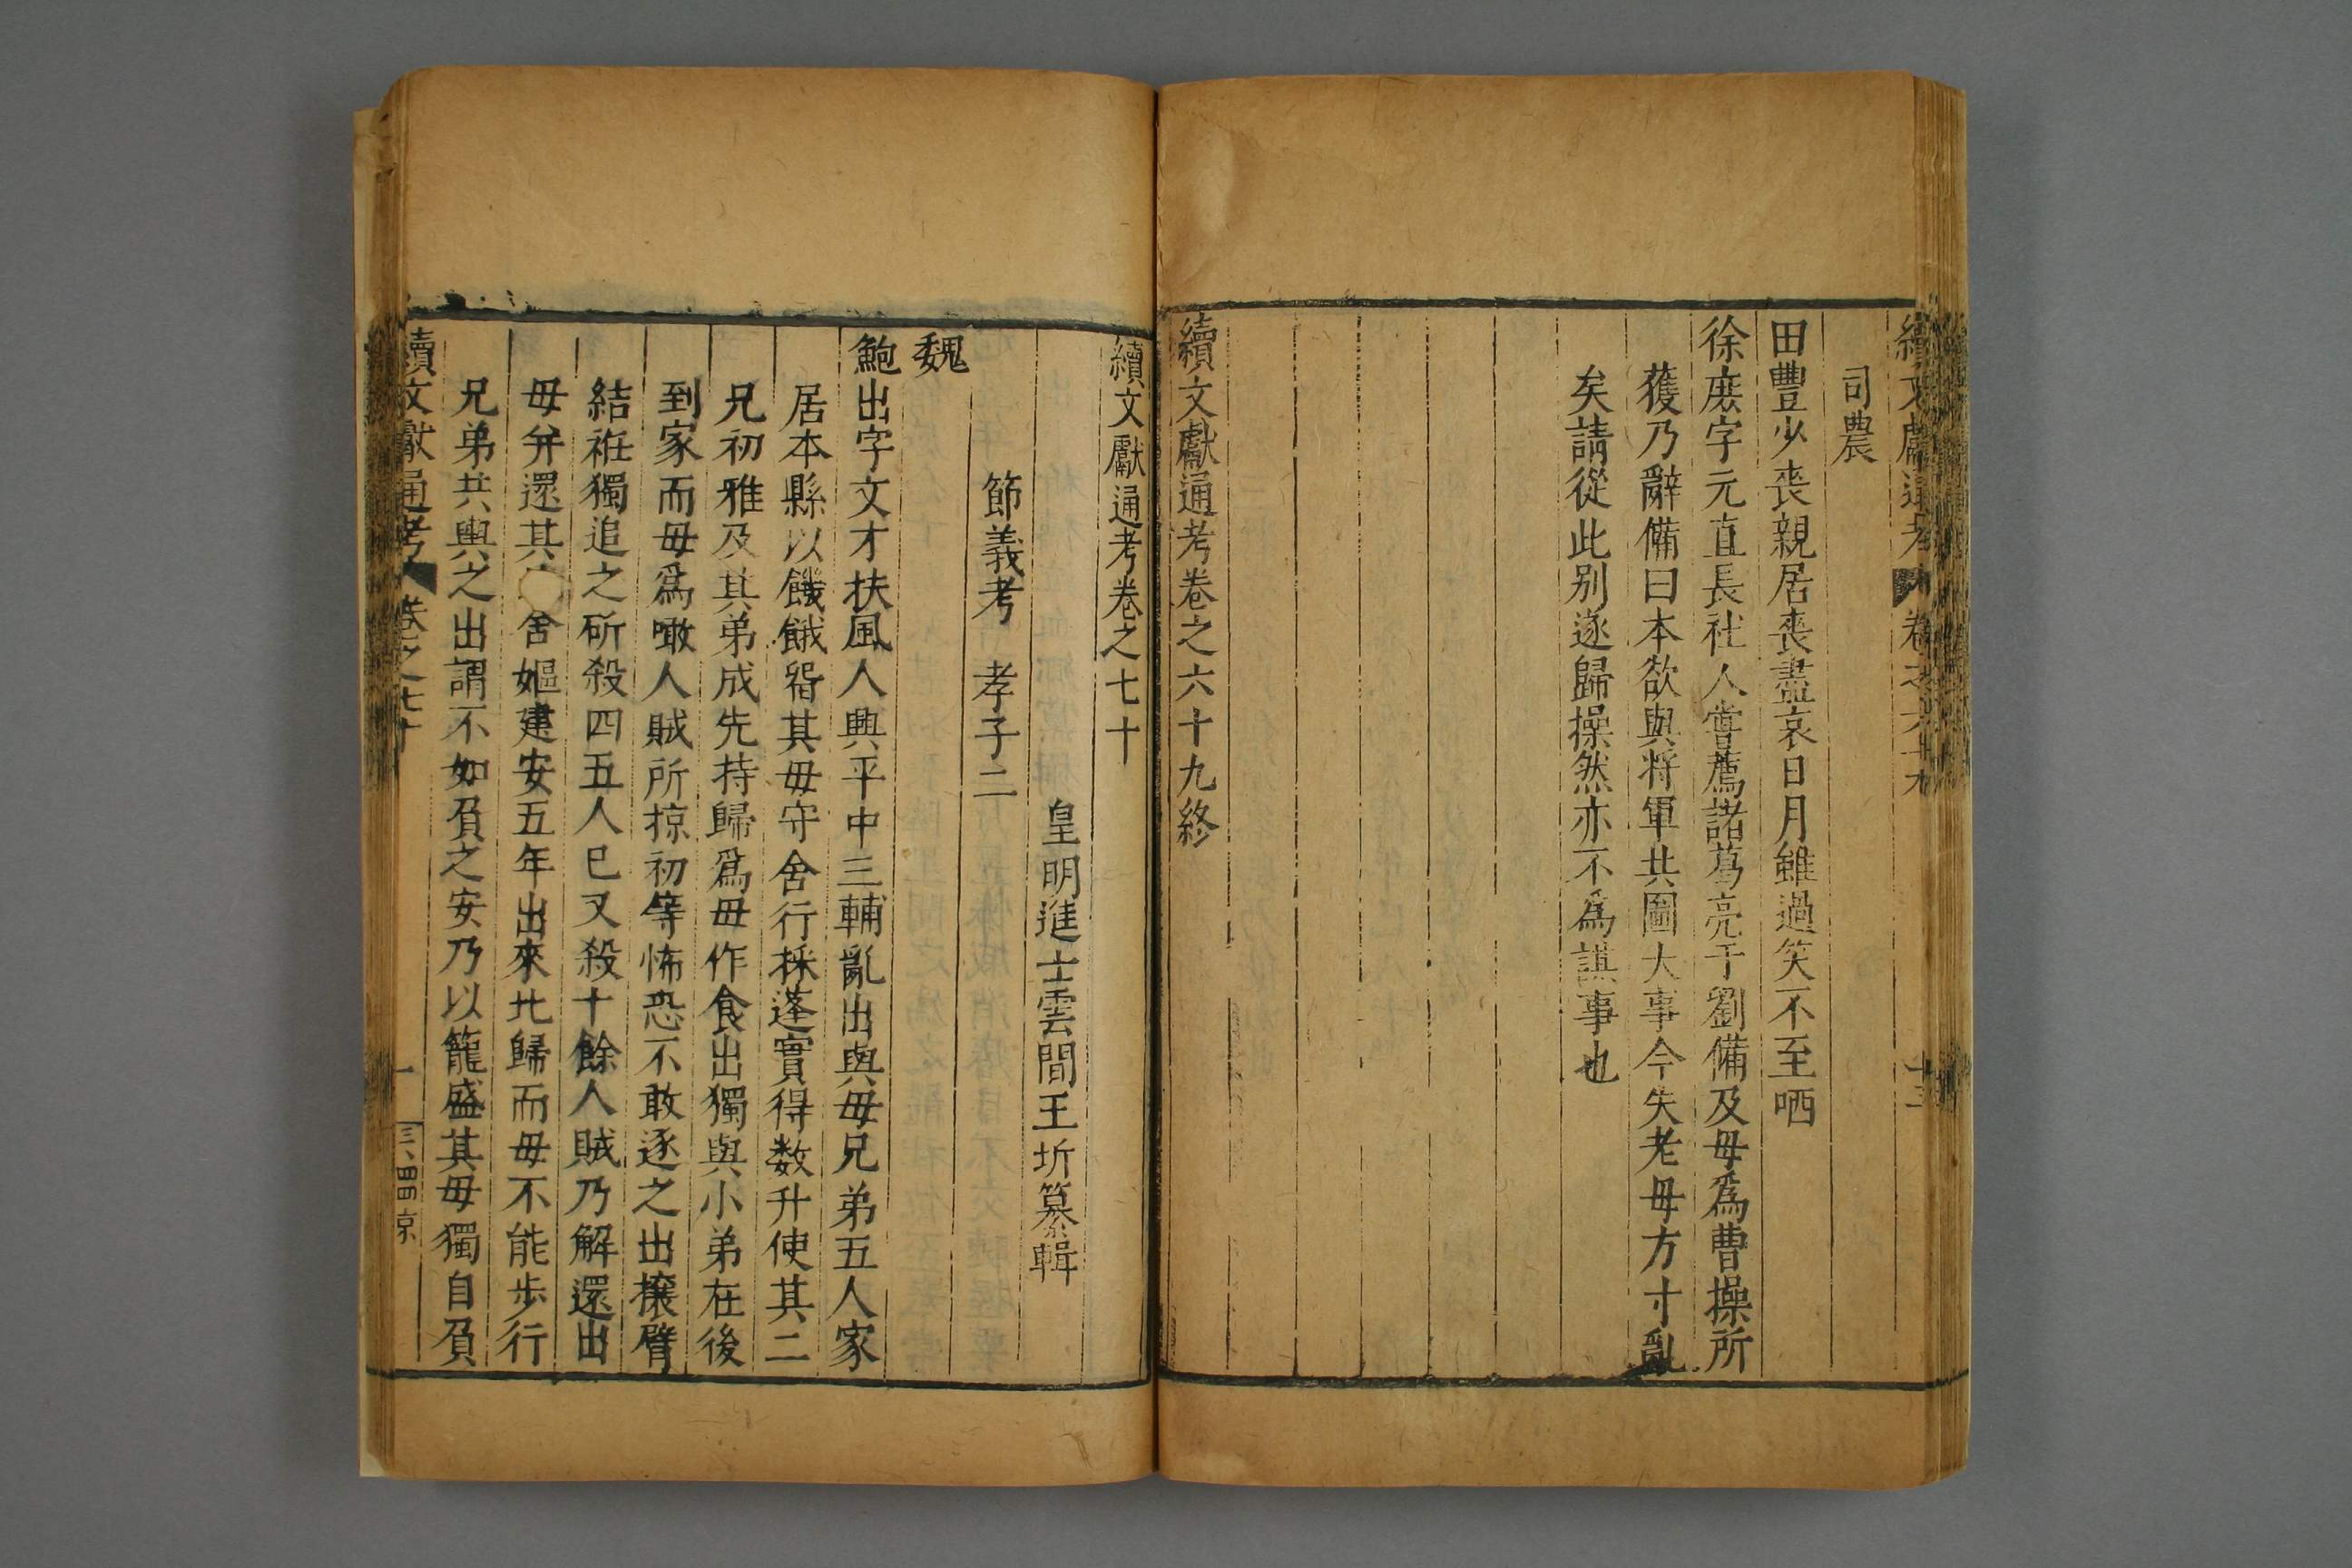 續文獻通考 卷之六十九 十三
司農
田豐少喪親居喪盡哀日月雖過笑不至哂
徐庶字元直長社人嘗薦諸葛亮于劉備及母爲曹操所
獲乃辭備曰本欲與將軍共圖大事今失老母方寸亂
矣請從此别遂歸操然亦不爲謀事也
續文獻通考卷之六十九終
續文獻通考卷之七十
皇明進士雲間王圻纂輯
節義考 孝子二
魏
鮑出字文才扶風人興平中三輔亂出與母兄弟五人家
居本縣以饑餓留其母守舍行採蓬實得数升使其二
兄初雅及其弟成先持歸爲母作食出獨與小弟在後
到家而母爲噉人賊所掠初等怖恐不敢逐之出攘臂
結袵獨追之斫殺四五人已又殺十餘人賊乃解還出
母并還其舍嫗建安五年出來北歸而母不能步行
兄弟共輿之出謂不如負之安乃以籠盛其母獨自負
續文獻通考 卷之七十 一 三、四四 京